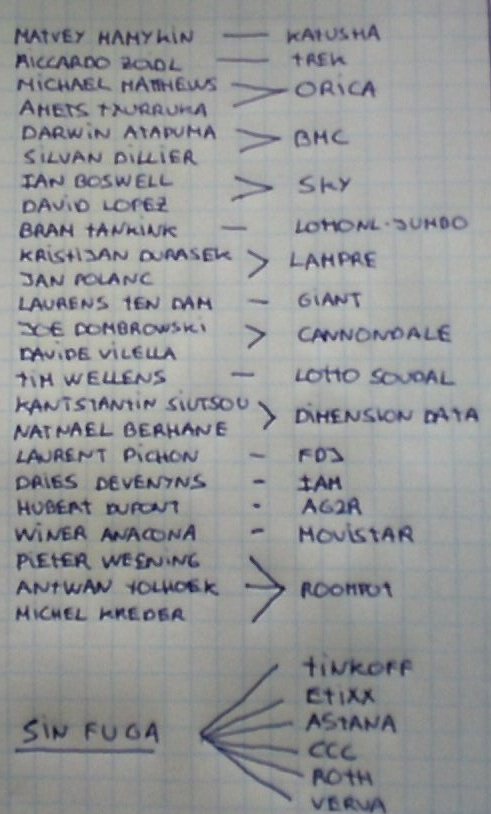 MATVEY MAMYKIN — KATUSHA
RICCARDO ZOIDL — TREK
MICHAEL MATTHEWS
AMETS TXURRUKA > ORICA
DARWIN ATAPUMA
SILVAN DILLIER > BMC
IAN BOSWELL
DAVID LOPEZ > SKY
BRAM TANKINK — LOTTONL-JUMBO
KRISTIJAN DURASEK
JAN POLANC > LAMPRE
LAURENS TEN DAM — GIANT
JOE DOMBROWSKI
DAVIDE VILELLA > CANNONDALE
TIM WELLENS — LOTTO SOUDAL
KANTSTANTIN SIUTSOU
NATNAEL BERHANE > DIMENSION DATA
LAURENT PICHON - FDJ
DRIES DEVENYNS - IAM
HUBERT DUPONT - AG2R
WINER ANACONA - MOVISTAR
PIETER WEENING
ANTWAN TOLHOEK > ROOMPOT
MICHEL KREDER
SIN FUGA
TINKOFF
ETIXX
ASTANA
CCC
ROTH
VERVA